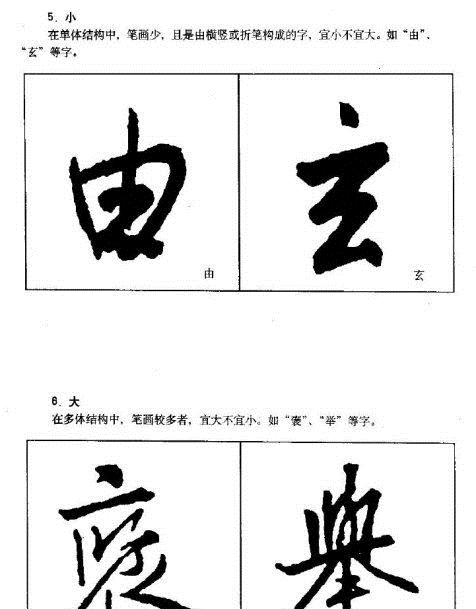 5．小
在单体结构中，笔画少，且是由横竖或折笔构成的字，宜小不宜大。如“由”、
“玄”等字。
由 玄
由 玄
6．大
在多体结构中，笔画较多者，宜大不宜小。如“褒”、“举”等字。
褒 舉